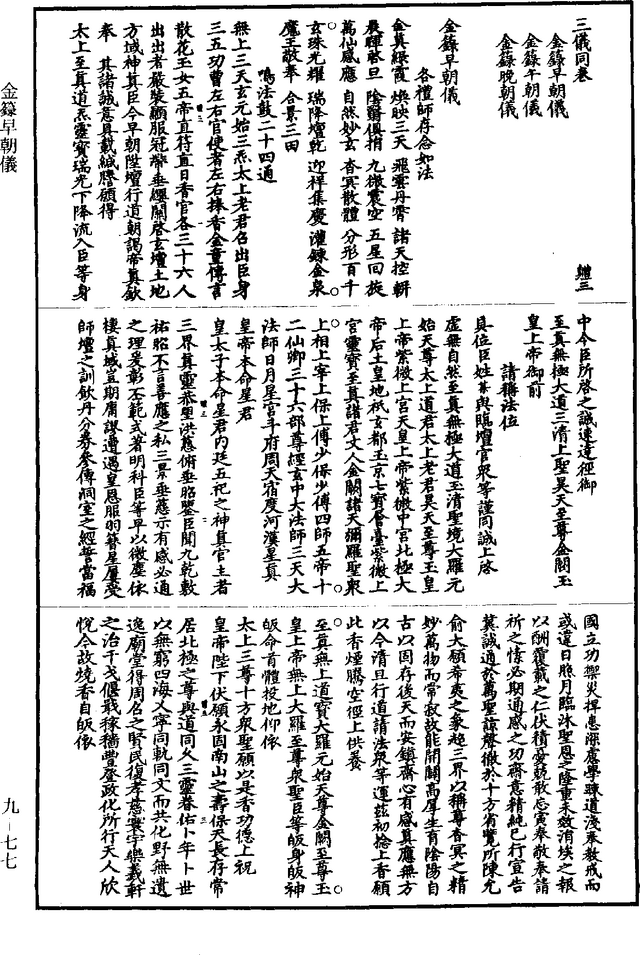 金籙早朝儀
九-七七
三儀同卷
金籙早朝儀
金籙午朝儀
金籙晚朝儀
金籙早朝儀
各禮師存念如法
金真綠霞 煥映三天 飛雲丹霄 諸天控軿
晨暉啓旦 陰翳俱捐 九微震空 五星回旋
萬仙感應 自然妙玄 杳冥散體 分形百千
玄珠光耀 瑞降壇乾 迎祥集慶 灌鍊金泉
魔王敬奉 合景三田
鳴法鼓二十四通
無上三天玄元始三炁太上老君召出臣身
三五功曹左右官使者左右捧香金童傳言
散花玉女五帝直符直日香官各三十六人
出出者嚴裝顯服冠帶垂纓關啓玄壇土地
方域神真臣今早朝陞壇行道朝謁帝真欽
奉 其諸誠意具載緘謄願得
太上至真道炁靈寶瑞光下降流入臣等身
中令臣所啓之誠速達徑御
至真無極大道三清上聖昊天至尊金闕玉
皇上帝御前
請稱法位
具位臣姓某與臨壇官衆等謹同誠上啓
虛無自然至真無極大道玉清聖境大羅元
始天尊太上道君太上老君昊天至尊玉皇
上帝紫微上宮天皇上帝紫微中宮北極大
帝后土皇地祇玄都玉京七寶層臺紫微上
宮靈寶至真諸君丈人金闕諸天彌羅聖衆
上相上宰上保上傅少保少傅四師五帝十
二仙卿三十六部尊經玄中大法師三天大
法師日月星宮斗府周天宿度河漢星真
皇帝本命星君
皇太子本命星君内廷五祀之神真官主者
三界真靈恭望洪慈俯垂昭鑒臣聞九乾敷
祐昭不言善應之私三景垂慈示有感必通
之理爰彰丕範式著明科臣等早以微塵依
棲真域豈期庸謬遭遇皇恩服羽簪星屢受
師壇之訓飲丹分券參傳洞室之經誓當福
國立功禦災捍患深慮學踈道淺奉教戒而
或違日照月臨沐聖恩之隆重未效涓埃之報
以酬覆載之仁伏積憂兢敢忘寅奉敬奉請
祈之悃必期通感之功齋意精純已行宣告
冀誠通於萬聖諒聲徹於十方省覽所陳允
俞大願希夷之象超三界以稱尊杳冥之精
妙萬物而常寂故能開闢高厚生育陰陽自
古以固存後天而安鎮齋心有感真應無方
以今清旦行道請法衆等運茲初捻上香願
此香煙騰空徑上供養
至真無上道寶大羅元始天尊金闕至尊玉
皇上帝無上大羅至尊衆聖臣等皈身皈神
皈命首體投地仰依
太上三尊十方衆聖願以是香功德上祝
皇帝陛下伏願永固南山之壽保天長存常
居北極之尊與道同久三靈眷佑卜年卜世
以無窮四海乂寧同軌同文而共化野無遺
逸廟堂得周召之賢民復孝慈寰宇樂羲軒
之治干戈偃戢稼穡豐登政化所行天人欣
悅今故燒香自皈依